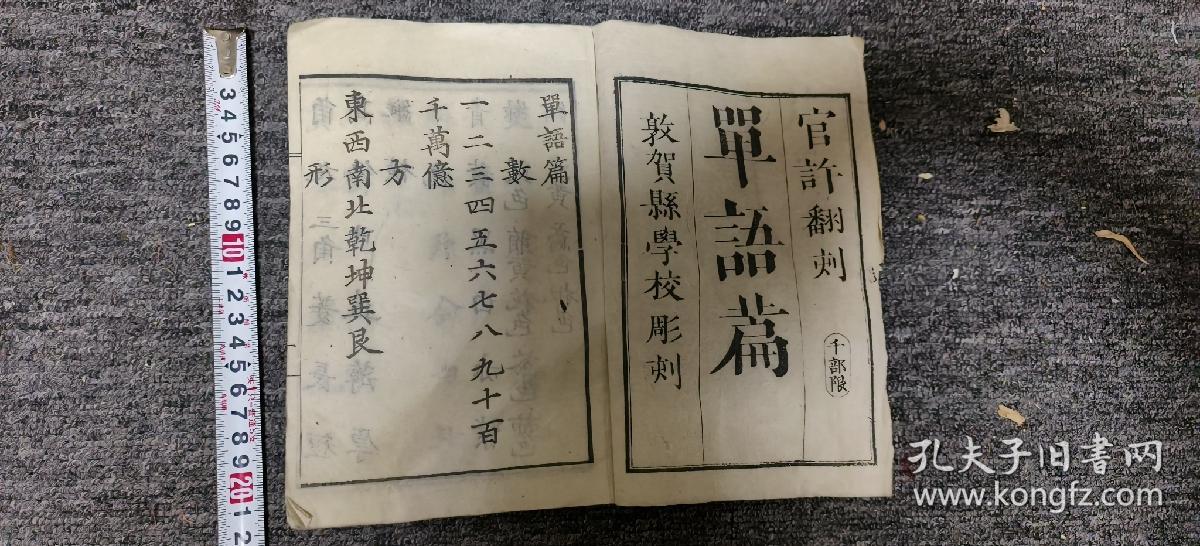 官許翻刻
單語篇
千部限
敦賀縣學校彫刻
單語篇
數
一二三四五六七八九十百
千萬億
方
東西南北乾坤巽艮
形
3 4 5 6 7 8 9 10 1 2 3 4 5 6 7 8 9 20 1 2
孔夫子旧书网
www.kongfz.com